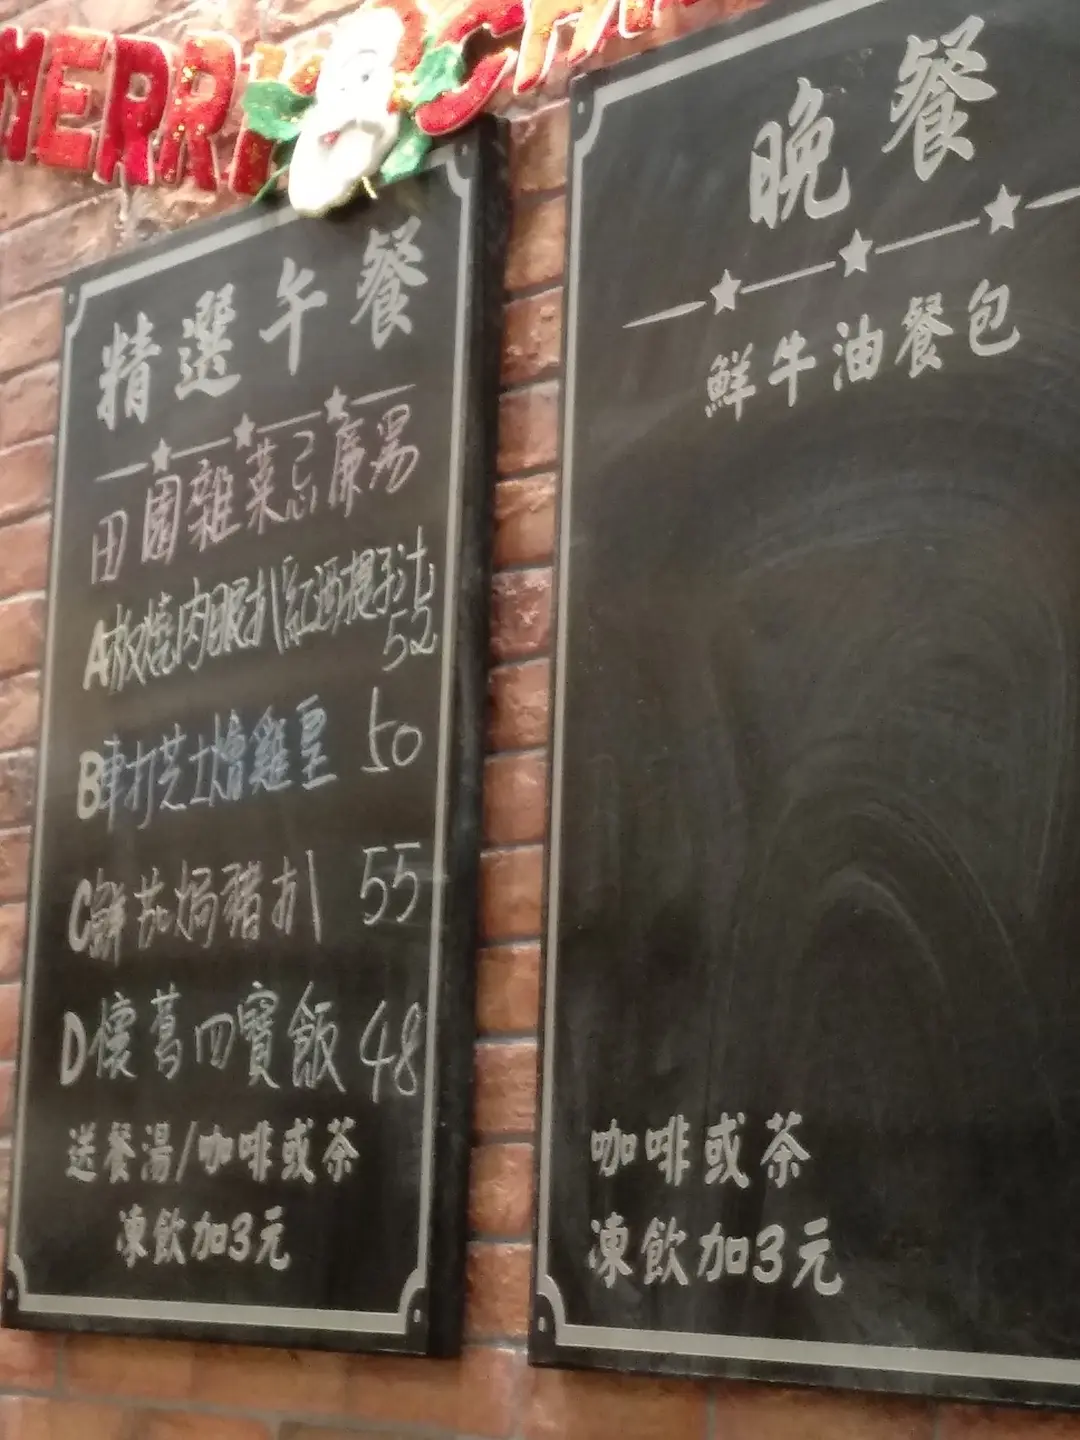 MERRY CH
精選午餐
田園雜菜忌廉湯
A板燒肉眼扒紅酒提子汁
52
B車打芝士燴雞皇 50
C鮮茄焗豬扒 55
D懷舊四寶飯 48
送餐湯/咖啡或茶
凍飲加3元
晚餐
鮮牛油餐包
咖啡或茶
凍飲加3元